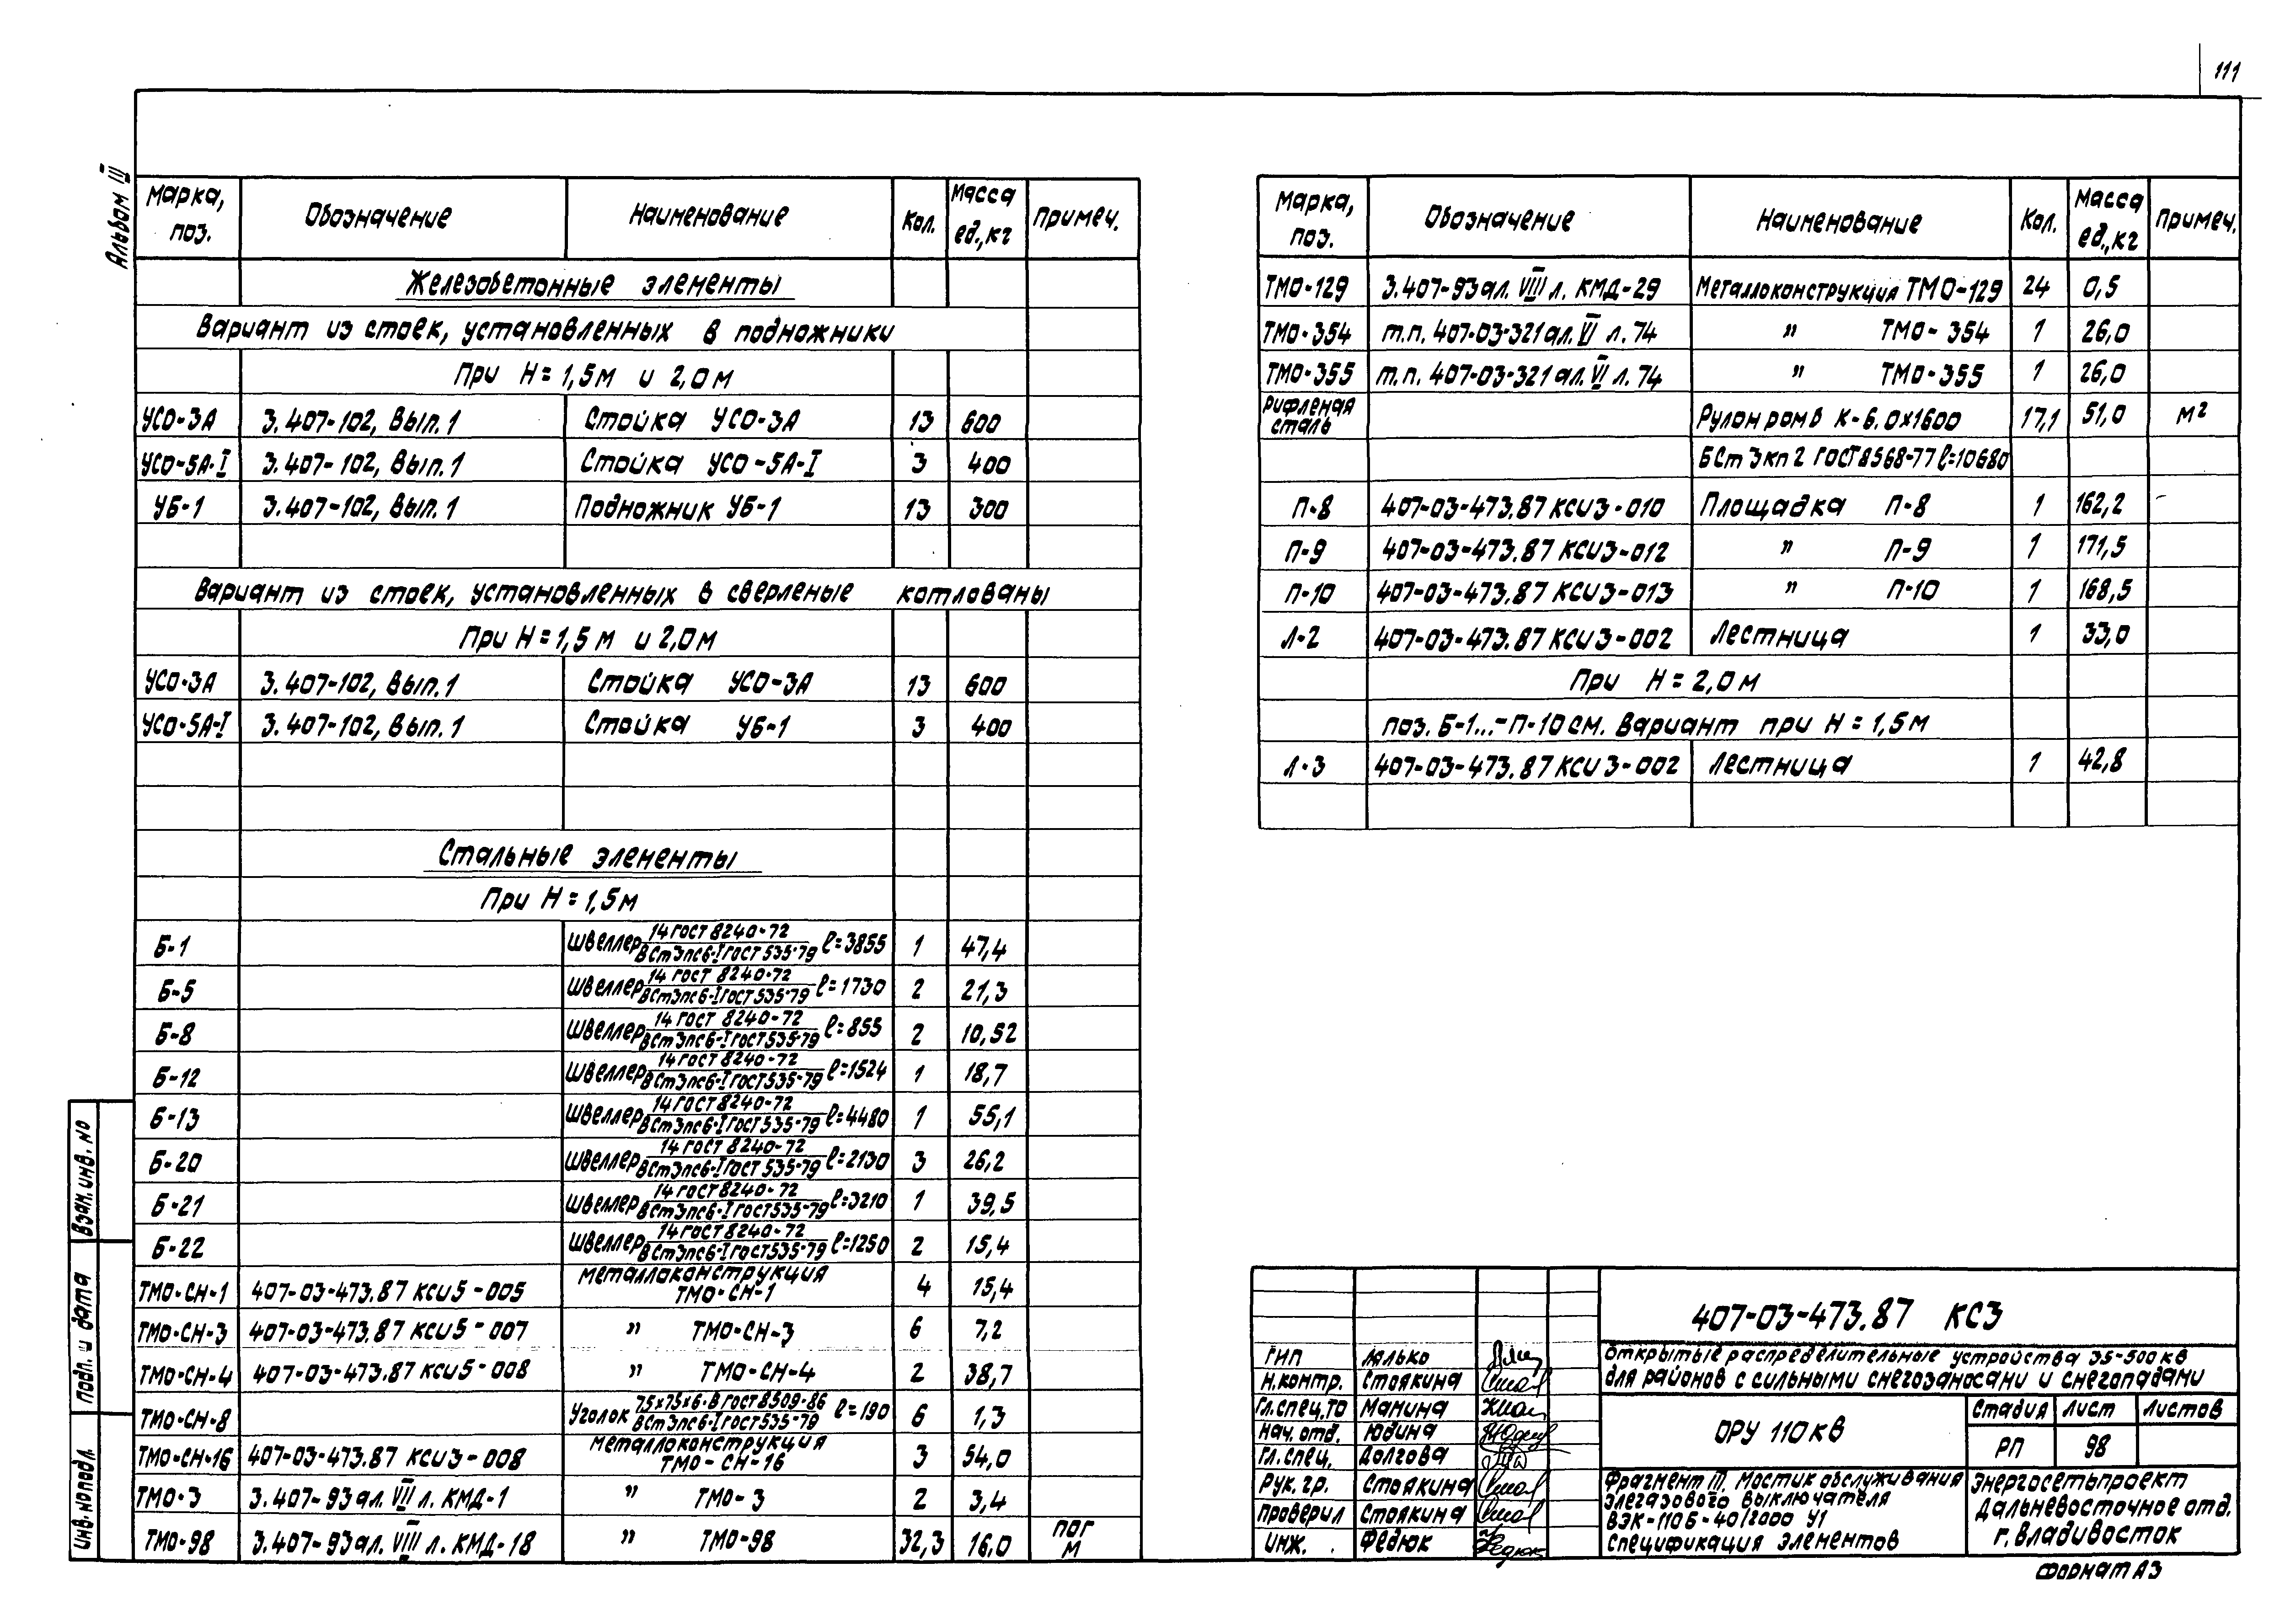 111
Альбом III
Марка, поз. Обозначение Наименование Кол. Масса ед., кг Примеч.
Железобетонные элементы
Вариант из стоек, установленных в подножники
При Н = 1,5 м и 2,0 м
УСО-3А 3.407-102, Вып. 1 Стойка УСО-3А 13 600
УСО-5А-I 3.407-102, Вып. 1 Стойка УСО-5А-I 3 400
УБ-1 3.407-102, Вып. 1 Подножник УБ-1 13 300
Вариант из стоек, установленных в сверленые котлованы
При Н = 1,5 м и 2,0 м
УСО-3А 3.407-102, Вып. 1 Стойка УСО-3А 13 600
УСО-5А-I 3.407-102, Вып. 1 Стойка УБ-1 3 400
Стальные элементы
При Н = 1,5 м
Б-1 Швеллер 14 ГОСТ 8240-72 / ВСт3пс6-I ГОСТ 535-79 ℓ=3855 1 47,4
Б-5 Швеллер 14 ГОСТ 8240-72 / ВСт3пс6-I ГОСТ 535-79 ℓ=1730 2 21,3
Б-8 Швеллер 14 ГОСТ 8240-72 / ВСт3пс6-I ГОСТ 535-79 ℓ=855 2 10,52
Б-12 Швеллер 14 ГОСТ 8240-72 / ВСт3пс6-I ГОСТ 535-79 ℓ=1524 1 18,7
Б-13 Швеллер 14 ГОСТ 8240-72 / ВСт3пс6-I ГОСТ 535-79 ℓ=4480 1 55,1
Б-20 Швеллер 14 ГОСТ 8240-72 / ВСт3пс6-I ГОСТ 535-79 ℓ=2130 3 26,2
Б-21 Швеллер 14 ГОСТ 8240-72 / ВСт3пс6-I ГОСТ 535-79 ℓ=3210 1 39,5
Б-22 Швеллер 14 ГОСТ 8240-72 / ВСт3пс6-I ГОСТ 535-79 ℓ=1250 2 15,4
ТМО-СН-1 407-03-473.87 КСИ5-005 Металлоконструкция ТМО-СН-1 4 15,4
ТМО-СН-3 407-03-473.87 КСИ5-007 " ТМО-СН-3 6 7,2
ТМО-СН-4 407-03-473.87 КСИ5-008 " ТМО-СН-4 2 38,7
ТМО-СН-8 Уголок 75х75х6-В ГОСТ 8509-86 / ВСт3пс6-I ГОСТ 535-79 ℓ=190 6 1,3
ТМО-СН-16 407-03-473.87 КСИ3-008 Металлоконструкция ТМО-СН-16 3 54,0
ТМО-3 3.407-93 ал. VIII л. КМД-1 " ТМО-3 2 3,4
ТМО-98 3.407-93 ал. VIII л. КМД-18 " ТМО-98 32,3 16,0 пог м
Марка, поз. Обозначение Наименование Кол. Масса ед., кг Примеч.
ТМО-129 3.407-93 ал. VIII л. КМД-29 Металлоконструкция ТМО-129 24 0,5
ТМО-354 т.п. 407-03-321 ал. VI л. 74 " ТМО-354 1 26,0
ТМО-355 т.п. 407-03-321 ал. VI л. 74 " ТМО-355 1 26,0
Рифленая сталь Рулон ромб К-6,0х1600 17,1 51,0 м²
БСт3кп2 ГОСТ 8568-77 ℓ=10680
П-8 407-03-473.87 КСИ3-010 Площадка П-8 1 162,2
П-9 407-03-473.87 КСИ3-012 " П-9 1 171,5
П-10 407-03-473.87 КСИ3-013 " П-10 1 168,5
Л-2 407-03-473.87 КСИ3-002 Лестница 1 33,0
При Н = 2,0 м
поз. Б-1...-П-10 см. Вариант при Н = 1,5 м
Л-3 407-03-473.87 КСИ3-002 Лестница 1 42,8
407-03-473.87 КС3
Открытые распределительные устройства 35-500 кВ
для районов с сильными снегозаносами и снегопадами
ГИП Ялько
Н.контр. Стоякина
Гл.спец.ТО Манина
Нач. отд. Юдина
Гл.спец. Долгова
Рук. гр. Стоякина
Проверил Стоякина
Инж. Федюк
ОРУ 110 кВ
Стадия Лист Листов
РП 98
Фрагмент III. Мостик обслуживания
элегазового выключателя
ВЭК-110Б-40/2000 У1
Спецификация элементов
Энергосетьпроект
Дальневосточное отд.
г. Владивосток
Формат А3
Взам. инв. №
Подп. и дата
Инв. № подл.